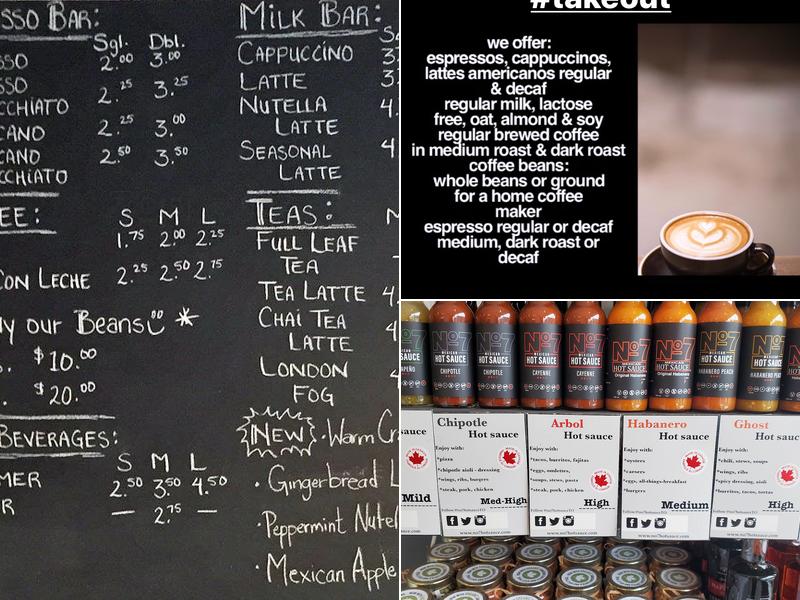 SSO BAR:
Sgl. Dbl.
SSO 2.00 3.00
SSO 2.25 3.25
CCHIATO
CANO 2.25 3.00
CANO 2.50 3.50
CCHIATO
EE: S M L
1.75 2.00 2.25
CON LECHE 2.25 2.50 2.75
y our Beans *
$10.00
$20.00
BEVERAGES:
S M L
MER 2.50 3.50 4.50
R — 2.75 —
MILK BAR:
CAPPUCCINO 3
LATTE 3
NUTELLA 4
LATTE
SEASONAL 4
LATTE
TEAS: M
FULL LEAF
TEA
TEA LATTE 4
CHAI TEA
LATTE
LONDON 4
FOG
NEW • Warm
• Gingerbread L
• Peppermint Nutel
• Mexican Apple
#takeout
we offer:
espressos, cappuccinos,
lattes americanos regular
& decaf
regular milk, lactose
free, oat, almond & soy
regular brewed coffee
in medium roast & dark roast
coffee beans:
whole beans or ground
for a home coffee
maker
espresso regular or decaf
medium, dark roast or
decaf
No7 No7 No7 No7 No7 No7 No7
MEXICAN
HOT SAUCE
CHIPOTLE
HOT SAUCE
CHIPOTLE
HOT SAUCE
CAYENNE
HOT SAUCE
CAYENNE
HOT SAUCE
Original Habanero
HOT SAUCE
Original Habanero
HOT SAUCE
HABANERO PEACH
HOT SAUCE
HABANERO PEAC
auce
Mild
Chipotle
Hot sauce
Enjoy with:
*pizza
*chipotle aioli - dressing
*wings, ribs, burgers
*steak, pork, chicken
Med-High
www.no7hotsauce.com
Arbol
Hot sauce
Enjoy with:
*tacos, burritos, fajitas
*eggs, omlettes,
*soups, stews, pasta
*steak, pork, chicken
High
www.no7hotsauce.com
Habanero
Hot sauce
Enjoy with:
*oysters
*caesars
*eggs, all-things-breakfast
*burgers
Medium
www.no7hotsauce.com
Ghost
Hot sauc
Enjoy with:
*chili, stews, soups
*wings, ribs
*spicy dressing, aioli
*burritos, tacos, tortas
High
www.no7hotsauce.com